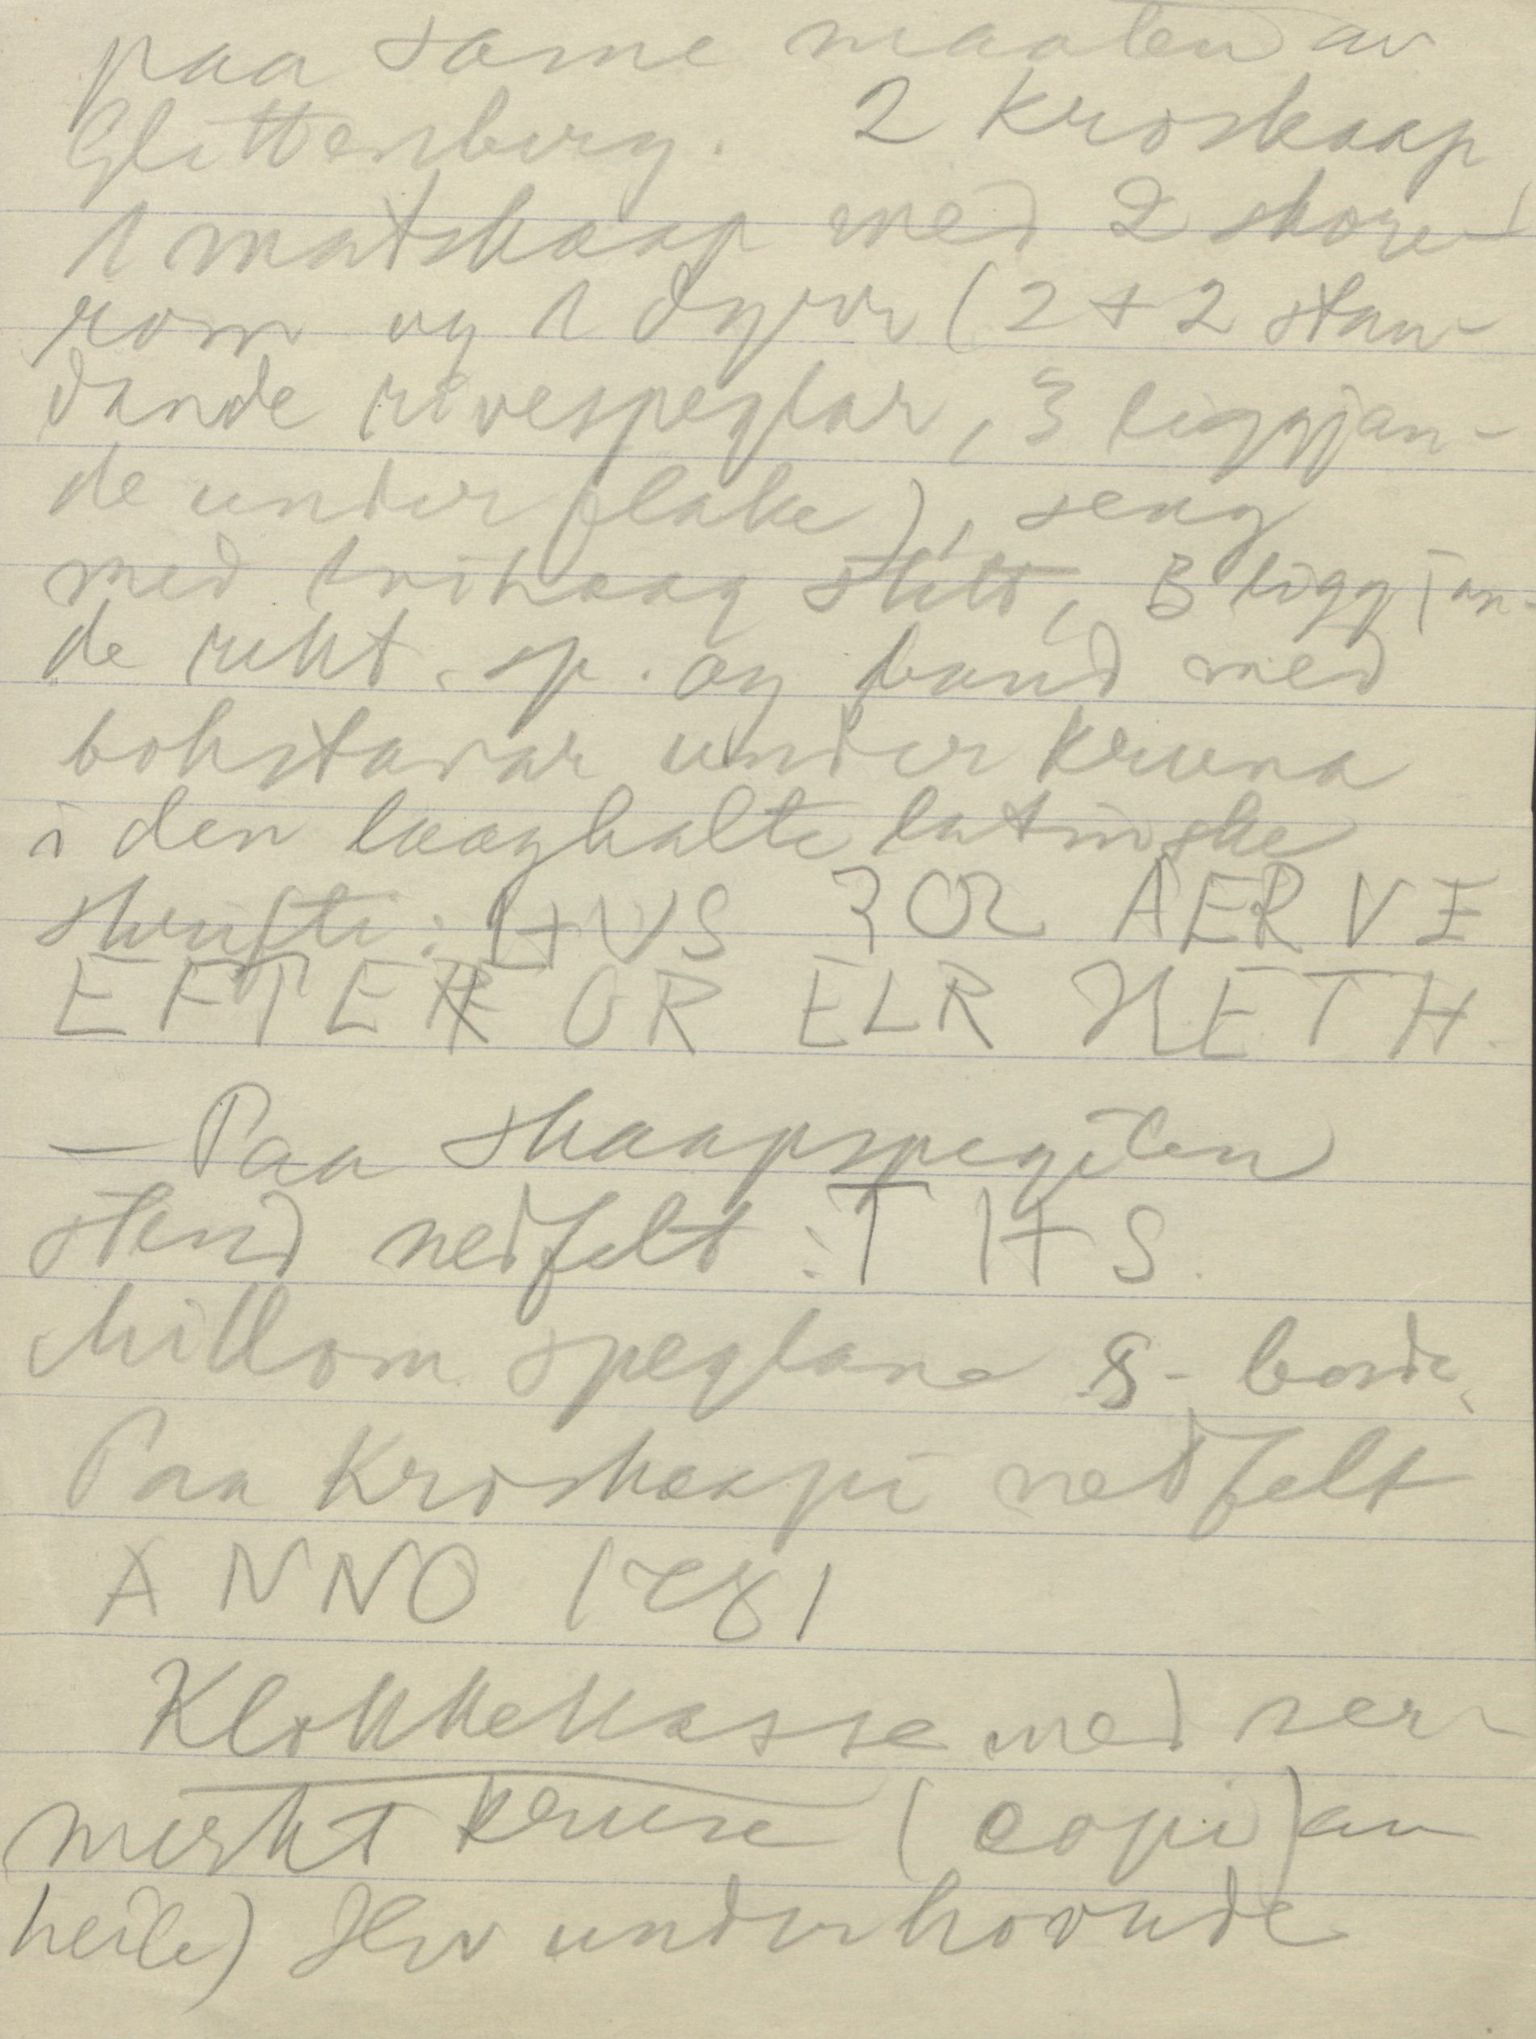 paa same maaten av
Glittenberg. 2 Kroskaap
1 matskaap med 2 skore
rom og 1 dyrer (2 + 2 stan-
dande rivespeglar, 3 liggjan-
de under flake), seng
med trihaag stett, 3 liggjan-
de rekt. sp. og band med
bokstavar under kruna
i den laaghalte latinske
skrifti: HUS ЗOR AERVE
EFTER OR ELR HETH.
— Paa skaapspegilen
stend nedfelt: T H S.
Millom speglane S-bord.
Paa Kroskaapi nedfelt
ANNO 1781
Klokkekasse med ser-
merkt kruse (copi) av
heile) Her underhovude